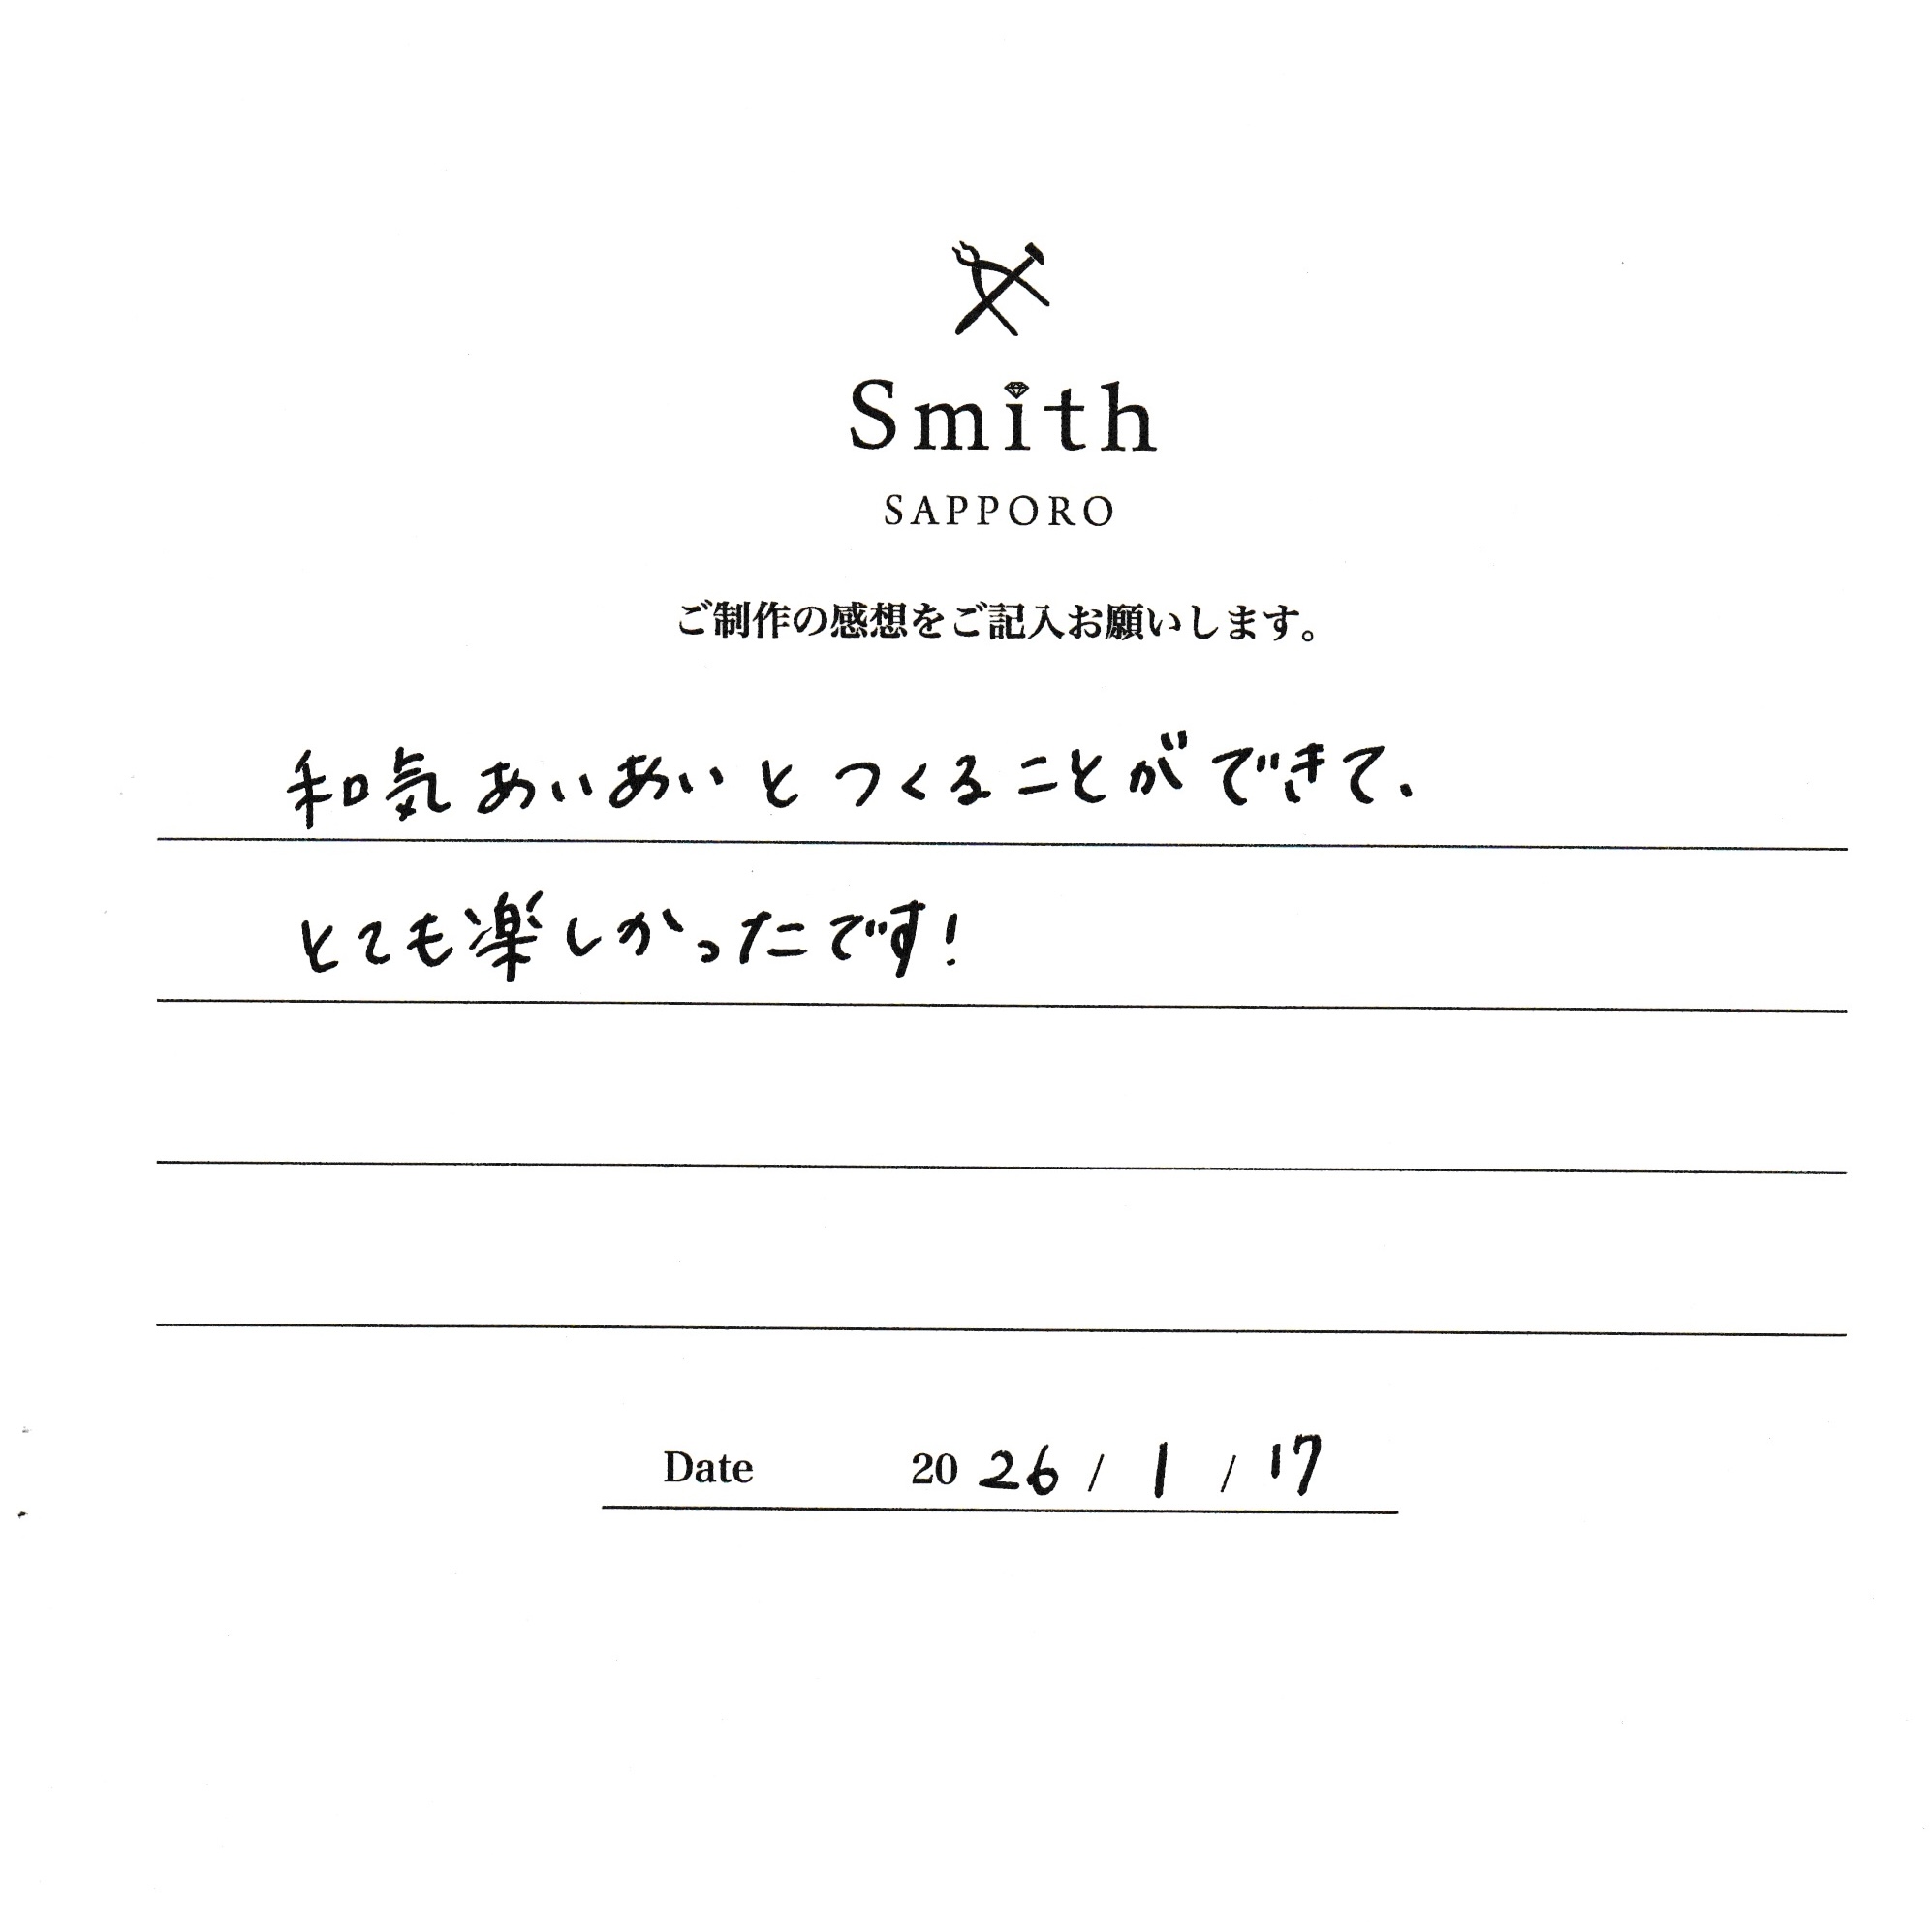 Smith
SAPPORO
ご制作の感想をご記入お願いします。
和気あいあいとつくることができて、
とても楽しかったです!
Date 2026 / 1 / 17